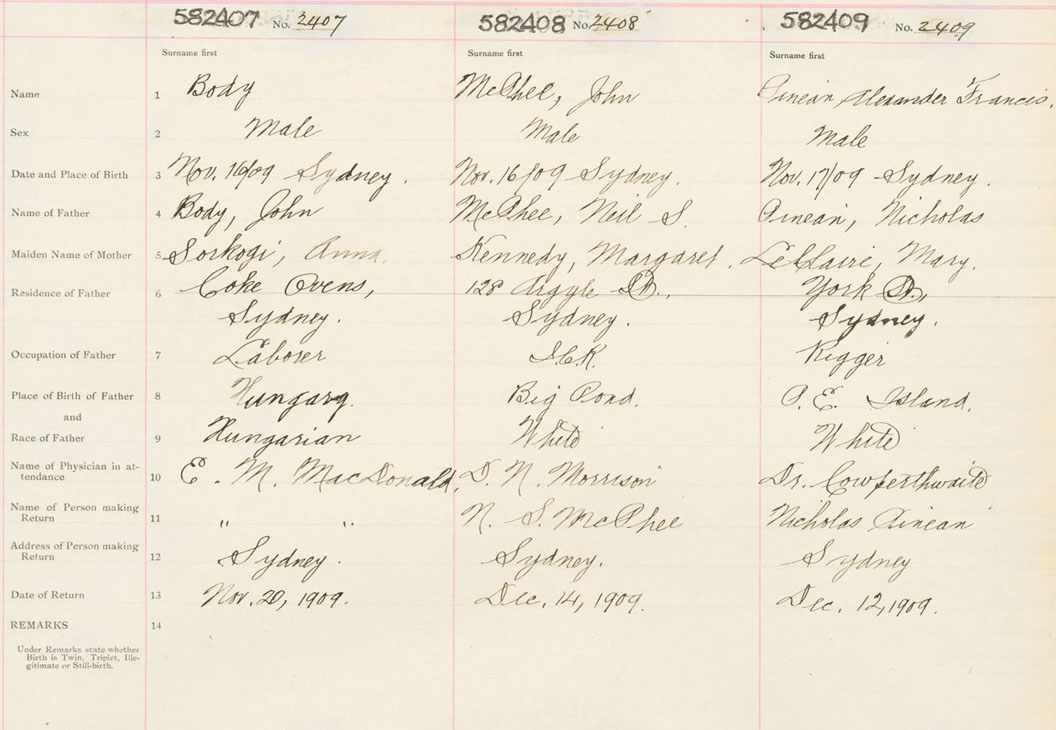 582407 No. 2407 582408 No. 2408 582409 No. 2409
Surname first Surname first Surname first
Name 1 Body McPhee, John Pinean, Alexander Francis.
Sex 2 Male Male Male
Date and Place of Birth 3 Nov. 16/09 Sydney. Nov. 16/09 Sydney. Nov. 17/09 Sydney.
Name of Father 4 Body, John McPhee, Neil S. Pinean, Nicholas
Maiden Name of Mother 5 Sorkogi, Anna. Kennedy, Margaret. LeClaire, Mary.
Residence of Father 6 Coke Ovens, 128 Argyle St., York St.,
Sydney. Sydney. Sydney.
Occupation of Father 7 Laborer Rigger
Place of Birth of Father 8 Hungary. Big Pond. P. E. Island.
and
Race of Father 9 Hungarian White White
Name of Physician in at-
tendance 10 E. M. MacDonald, D. N. Morrison Dr. Cowperthwaite
Name of Person making
Return 11 " " N. S. McPhee Nicholas Pinean
Address of Person making
Return 12 Sydney. Sydney. Sydney
Date of Return 13 Nov. 20, 1909. Dec. 14, 1909. Dec. 12, 1909.
REMARKS 14
Under Remarks state whether
Birth is Twin, Triplet, Ille-
gitimate or Still-birth.